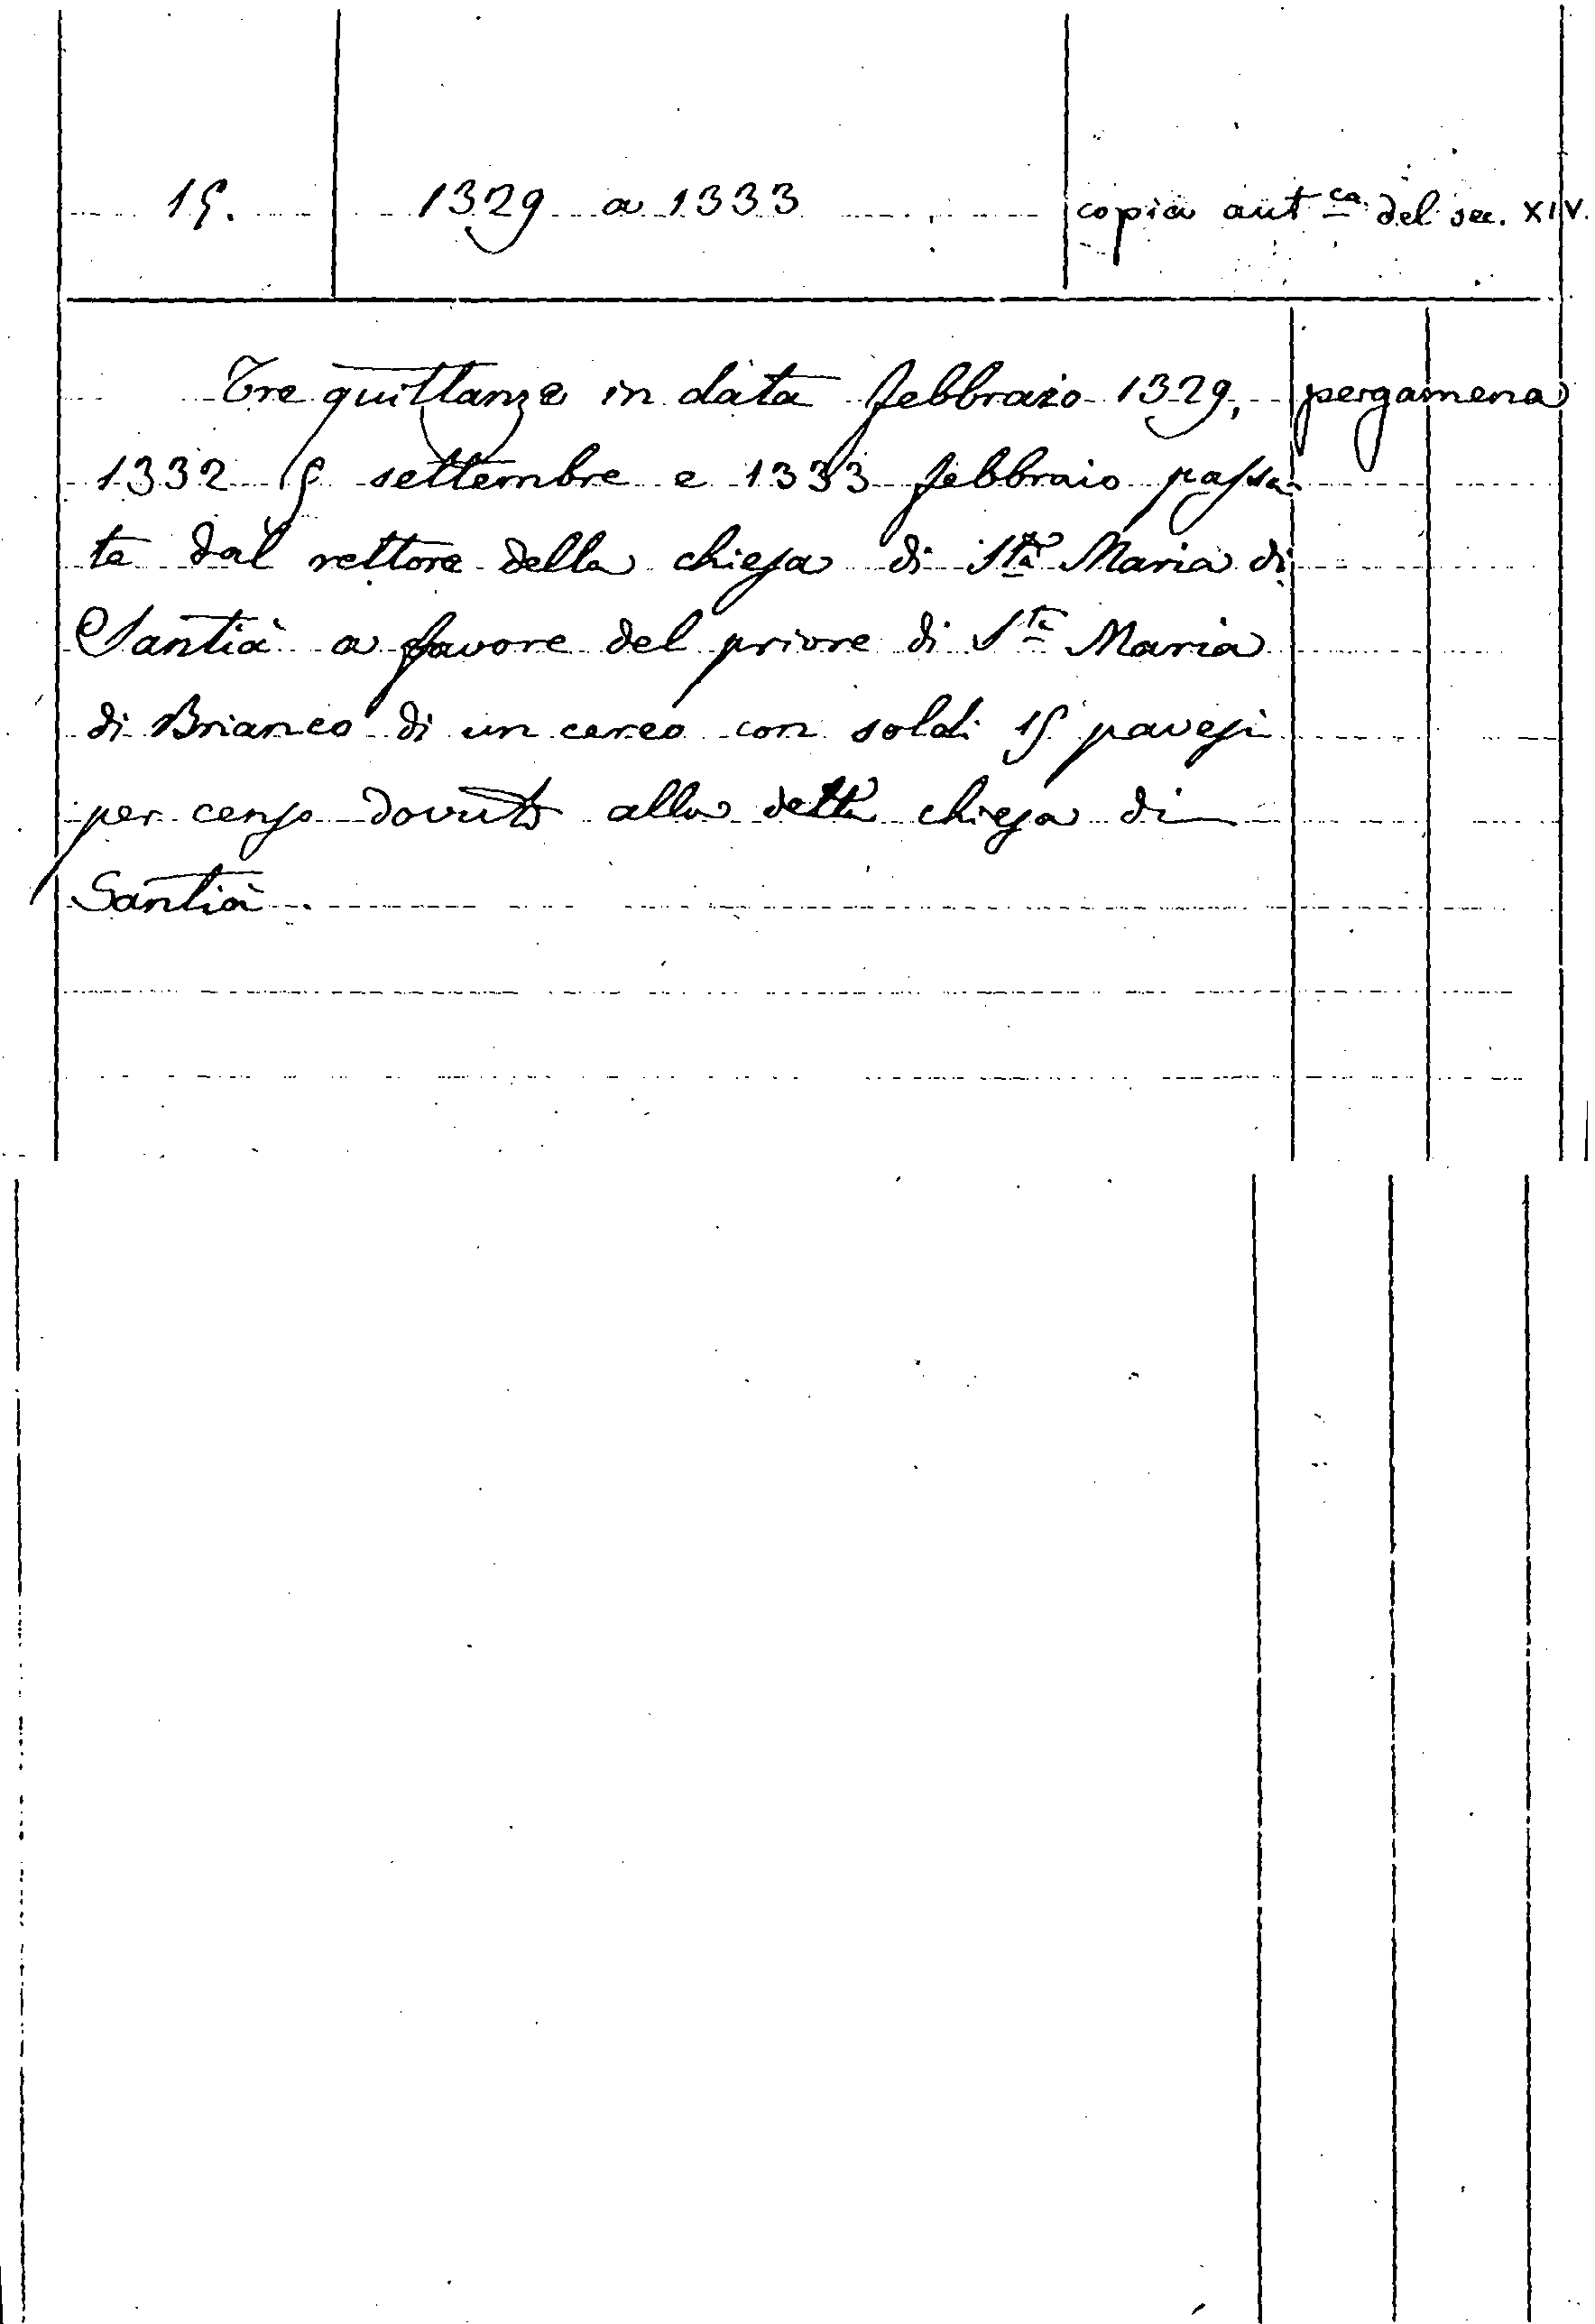 15. 1329 a 1333 copia aut.ca del sec. XIV.
Tre quittanze in data febbraio 1329, pergamena
1332 5 settembre e 1333 febbraio passa-
te dal rettore della chiesa di Sta Maria di
Santià a favore del priore di Sta Maria
di Brianco di un cereo con soldi 15 pavesi
per censo dovuto alla detta chiesa di
Santià.